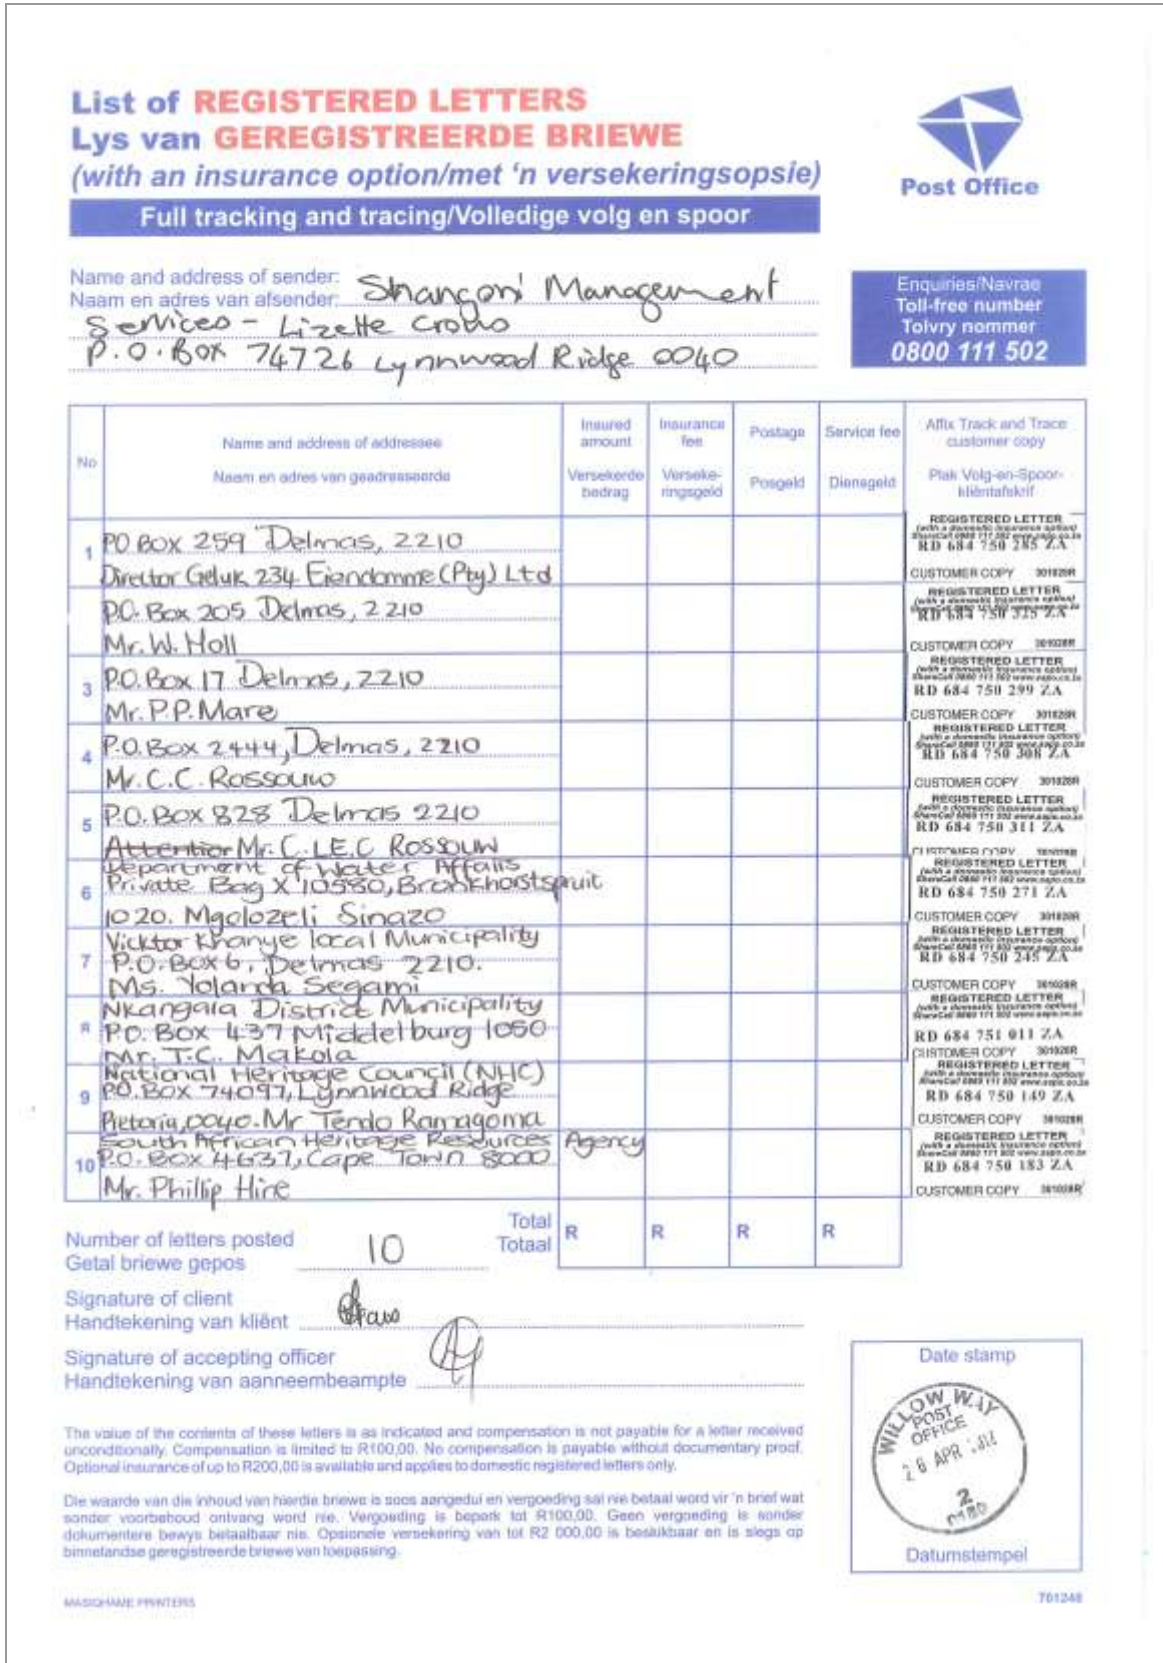 List of REGISTERED LETTERS
Lys van GEREGISTREERDE BRIEWE
(with an insurance option/met 'n versekeringsopsie)
Full tracking and tracing/Volledige volg en spoor
Post Office
Name and address of sender:
Naam en adres van afsender:
Shangoni Management
Services - Lizette Crous
P.O. Box 74726 Lynnwood Ridge 0040
Enquiries/Navrae
Toll-free number
Tolvry nommer
0800 111 502
No
Name and address of addressee
Naam en adres van geadresseerde
Insured amount
Versekerde bedrag
Insurance fee
Verseke-ringsgeld
Postage
Posgeld
Service fee
Diensgeld
Affix Track and Trace customer copy
Plak Volg-en-Spoor-kliëntafskrif
1 PO Box 259 Delmas, 2210
Director Geluk 234 Eiendomme (Pty) Ltd
REGISTERED LETTER
(with a domestic insurance option)
ShareCall 0860 111 502 www.sapo.co.za
RD 684 750 285 ZA
CUSTOMER COPY 301028R
P.O. Box 205 Delmas, 2210
Mr. W. Holl
REGISTERED LETTER
(with a domestic insurance option)
ShareCall 0860 111 502 www.sapo.co.za
RD 684 750 325 ZA
CUSTOMER COPY 301028R
3 P.O. Box 17 Delmas, 2210
Mr. P.P. Mare
REGISTERED LETTER
(with a domestic insurance option)
ShareCall 0860 111 502 www.sapo.co.za
RD 684 750 299 ZA
CUSTOMER COPY 301028R
4 P.O. Box 2444, Delmas, 2210
Mr. C.C. Rossouw
REGISTERED LETTER
(with a domestic insurance option)
ShareCall 0860 111 502 www.sapo.co.za
RD 684 750 308 ZA
CUSTOMER COPY 301028R
5 P.O. Box 828 Delmas 2210
Attention Mr. C.LE.C Rossouw
REGISTERED LETTER
(with a domestic insurance option)
ShareCall 0860 111 502 www.sapo.co.za
RD 684 750 311 ZA
CUSTOMER COPY 301028R
Department of Water Affairs
6 Private Bag X 10580, Bronkhorstspruit
1020. Mgolozeli Sinazo
REGISTERED LETTER
(with a domestic insurance option)
ShareCall 0860 111 502 www.sapo.co.za
RD 684 750 271 ZA
CUSTOMER COPY 301028R
Vicktor Khanye local Municipality
7 P.O. Box 6, Delmas 2210.
Ms. Yolanda Segami
REGISTERED LETTER
(with a domestic insurance option)
ShareCall 0860 111 502 www.sapo.co.za
RD 684 750 245 ZA
CUSTOMER COPY 301028R
Nkangala District Municipality
8 P.O. Box 437 Middelburg 1050
Mr. T.C. Makola
REGISTERED LETTER
(with a domestic insurance option)
ShareCall 0860 111 502 www.sapo.co.za
RD 684 751 011 ZA
CUSTOMER COPY 301028R
National Heritage Council (NHC)
9 P.O. Box 74097, Lynnwood Ridge
Pretoria, 0040. Mr Tendo Ramagoma
REGISTERED LETTER
(with a domestic insurance option)
ShareCall 0860 111 502 www.sapo.co.za
RD 684 750 149 ZA
CUSTOMER COPY 301028R
South African Heritage Resources Agency
10 P.O. Box 4637, Cape Town 8000
Mr. Phillip Hine
REGISTERED LETTER
(with a domestic insurance option)
ShareCall 0860 111 502 www.sapo.co.za
RD 684 750 183 ZA
CUSTOMER COPY 301028R
Number of letters posted
Getal briewe gepos
10
Total
Totaal
R R R R
Signature of client
Handtekening van kliënt
Signature of accepting officer
Handtekening van aanneembeampte
The value of the contents of these letters is as indicated and compensation is not payable for a letter received
unconditionally. Compensation is limited to R100,00. No compensation is payable without documentary proof.
Optional insurance of up to R200,00 is available and applies to domestic registered letters only.
Die waarde van die inhoud van hierdie briewe is soos aangedui en vergoeding sal nie betaal word vir 'n brief wat
sonder voorbehoud ontvang word nie. Vergoeding is beperk tot R100,00. Geen vergoeding is sonder
dokumentere bewys betaalbaar nie. Opsionele versekering van tot R2 000,00 is beskikbaar en is slegs op
binnelandse geregistreerde briewe van toepassing.
Date stamp
WILLOW WAY
POST
OFFICE
APR
2
Datumstempel
MASIQHAME PRINTERS
701248